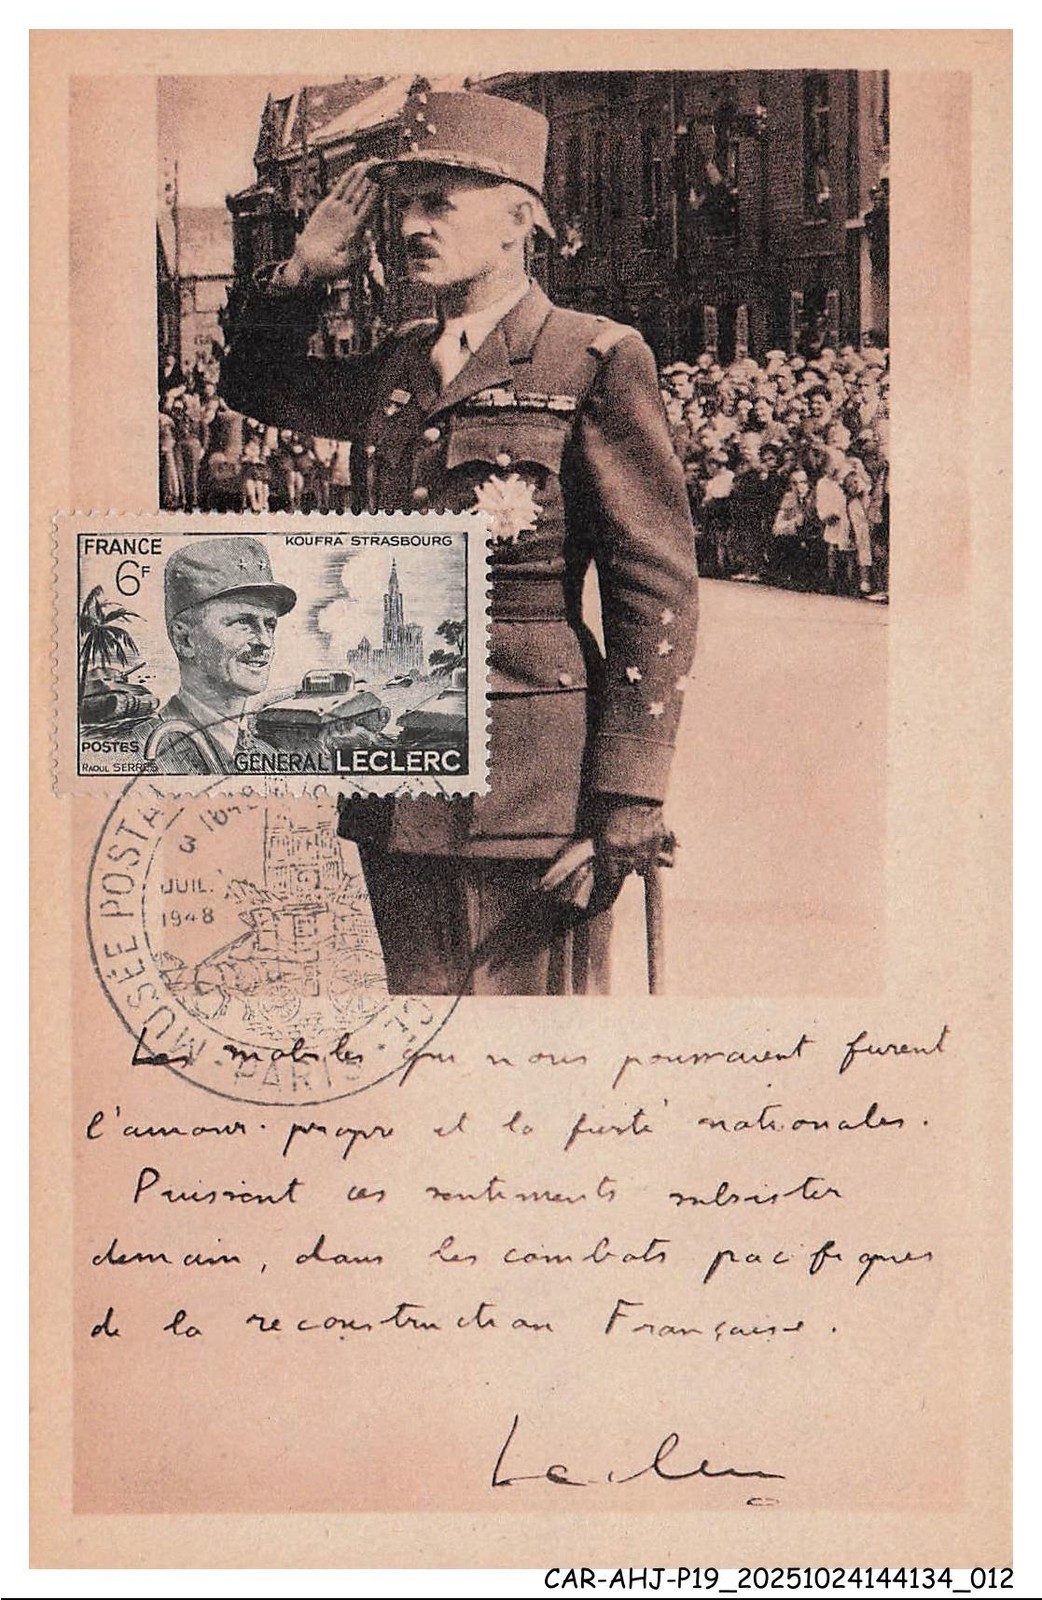 FRANCE
KOUFRA STRASBOURG
6F
POSTES
RAOUL SERRES
GÉNÉRAL LECLERC
3
JUIL.
1948
MUSÉE POSTAL
PARIS
Les mobiles qui nous poussaient furent
l'amour-propre et la fierté nationales.
Puissent ces sentiments subsister
demain, dans les combats pacifiques
de la reconstruction Française.
Leclerc
CAR-AHJ-P19_20251024144134_012